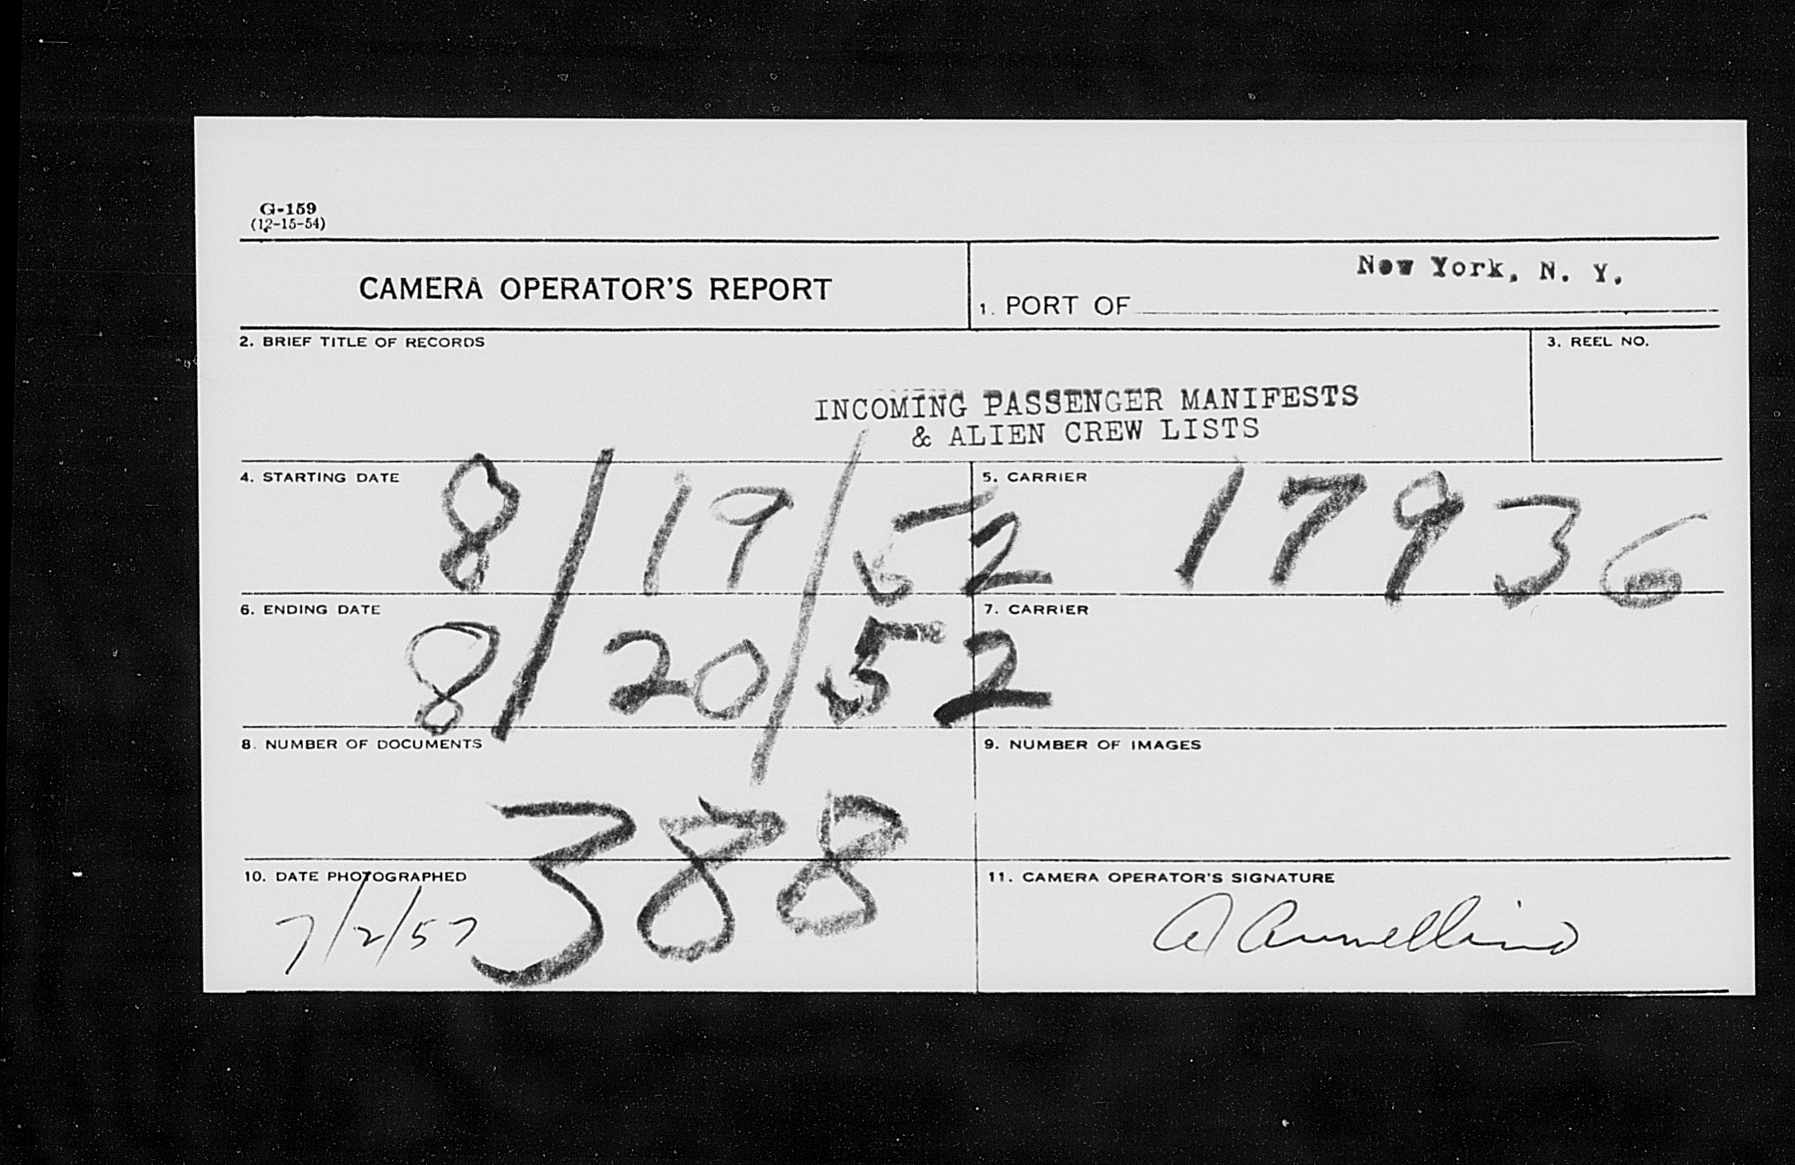 G-159
(12-15-54)
CAMERA OPERATOR'S REPORT
1. PORT OF New York, N. Y.
2. BRIEF TITLE OF RECORDS
INCOMING PASSENGER MANIFESTS
& ALIEN CREW LISTS
3. REEL NO.
4. STARTING DATE 8/19/52
5. CARRIER 17936
6. ENDING DATE 8/20/52
7. CARRIER
8. NUMBER OF DOCUMENTS 388
9. NUMBER OF IMAGES
10. DATE PHOTOGRAPHED
7/2/57
11. CAMERA OPERATOR'S SIGNATURE